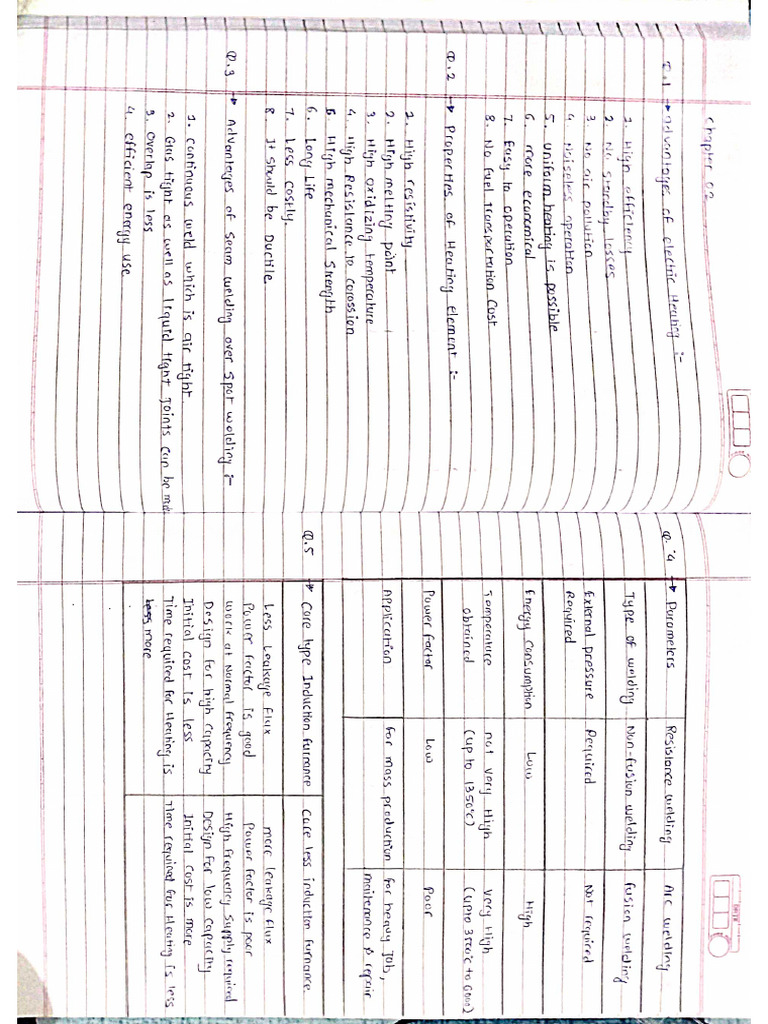 Chapter 02
Q.1 → advantages of electric Heating :-
1. High efficiency
2. No standby losses
3. No air pollution
4. Noiseless operation
5. uniform heating is possible
6. more economical
7. Easy to operation
8. No fuel transportation Cost
Q.2 → Properties of Heating Element :-
1. High resistivity
2. High melting point
3. High oxidizing temperature
4. High Resistance to corossion
5. High mechanical Strength
6. Long Life
7. Less Costly.
8. It should be Ductile
Q.3 → Advantages of Seam welding over Spot welding :-
1. continuous weld which is air tight.
2. Gas tight as well as liquid tight Joints can be
3. overlap is less
4. efficient energy use
Q.4 → Parameters Resistance welding Arc welding
Type of welding Non-fusion welding fusion welding
External pressure Required Not required
Required
Energy Consumption Low High
Temperature not very High very High
obtained (up to 1350°C)
Power factor Low Poor
Application for mass production for heavy Job,
maitenence & repair
Q.5 → Core type Induction furnance Core less induction furnance.
Less Leakage flux more leakage flux
Power factor is good Power factor is poor
work at Normal frequency High Frequency Supply required
Design for high capacity Design for low capacity
Initial cost is less Initial cost is more
Time required for Heating is Time required for Heating is less
less more
DATE